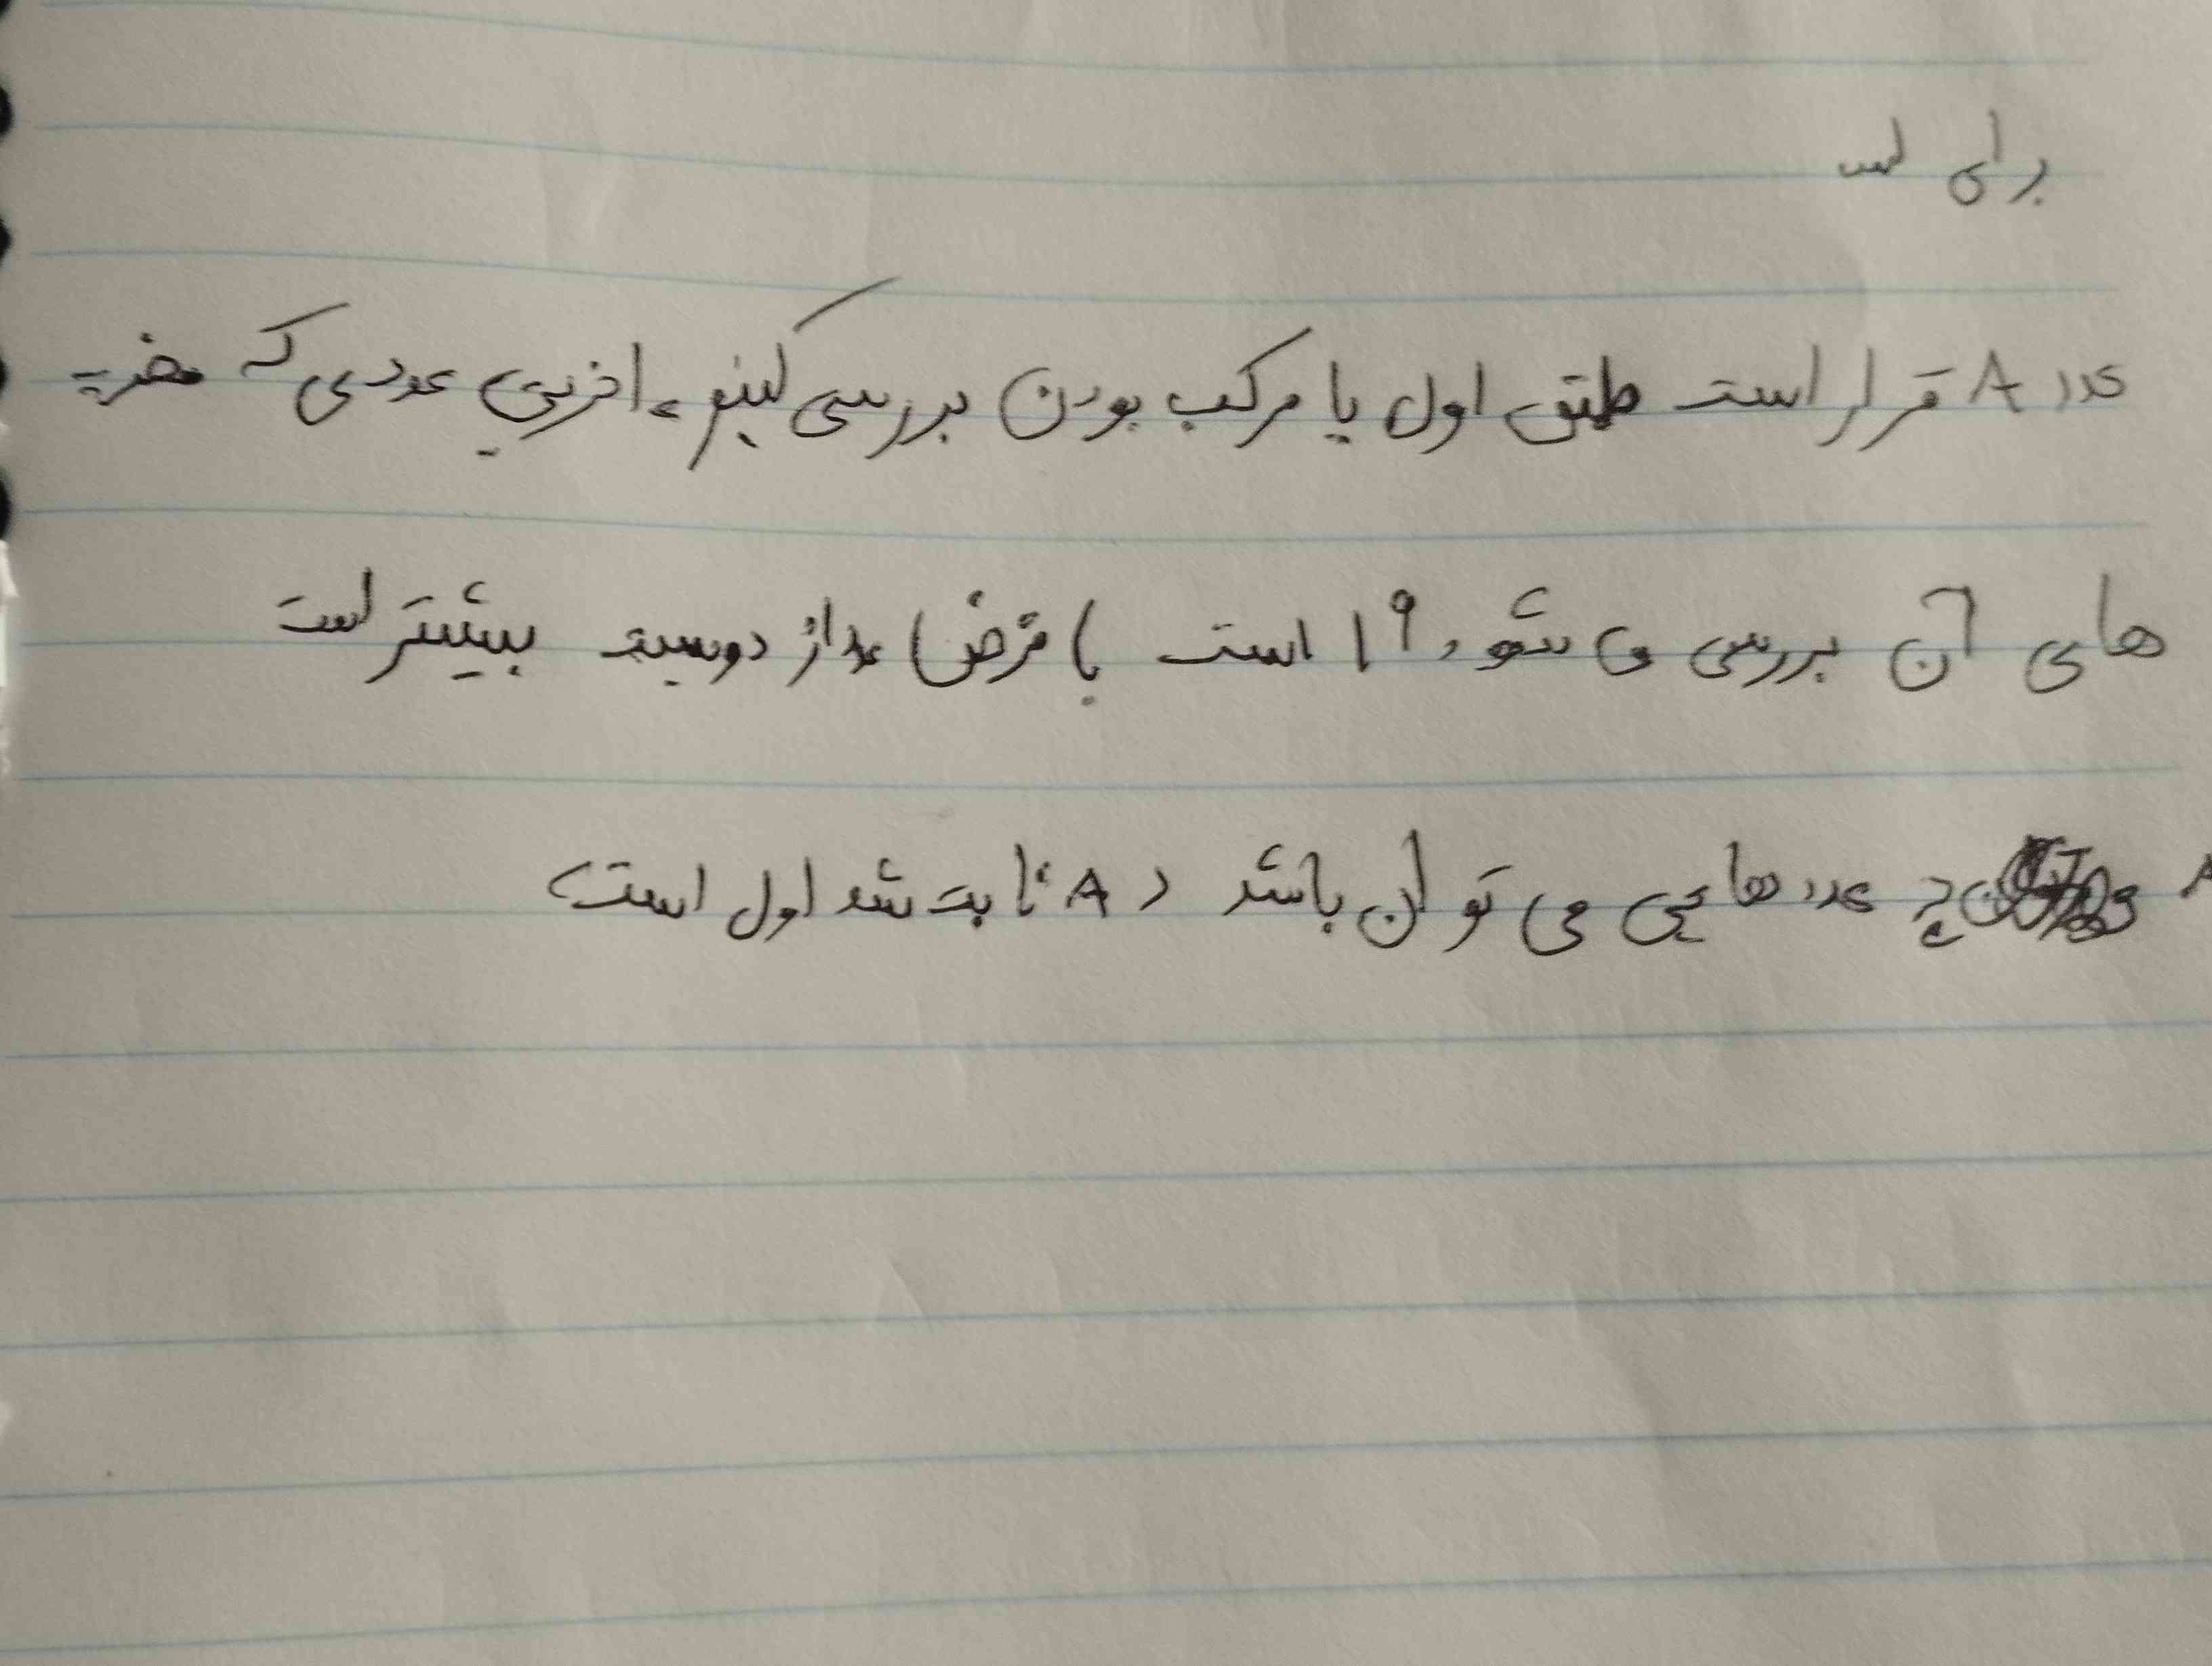 برای
عدد A قرار است طبق اول یا مرکب بودن بررسی کینم، اخرین عددی که مضرب
های آن بررسی می شود ۱۹ است با فرض عدد از دویست بیشتر است
A چ عددهایی می توان باشد د A ثابت شد اول است،